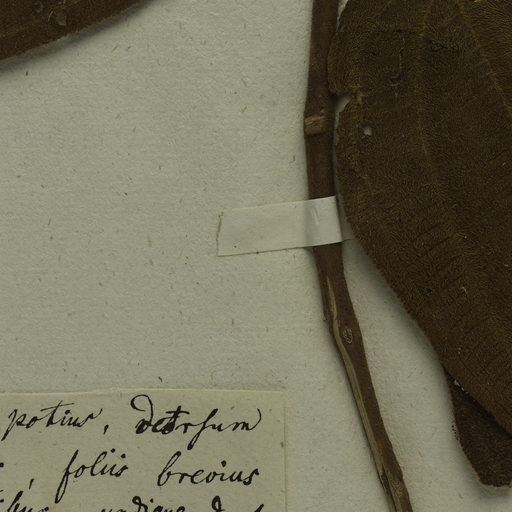 potius, detrsum
foliis brevius
undique